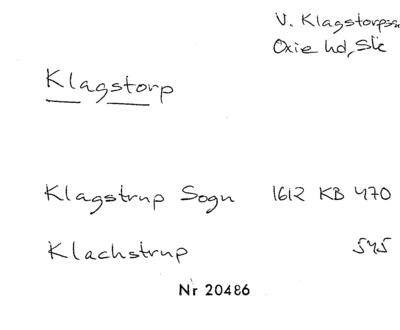 V. Klagstorps sn
Oxie hd, Sk
Klagstorp
Klagstrup Sogn 1612 KB 470
Klachstrup 545
Nr 20486